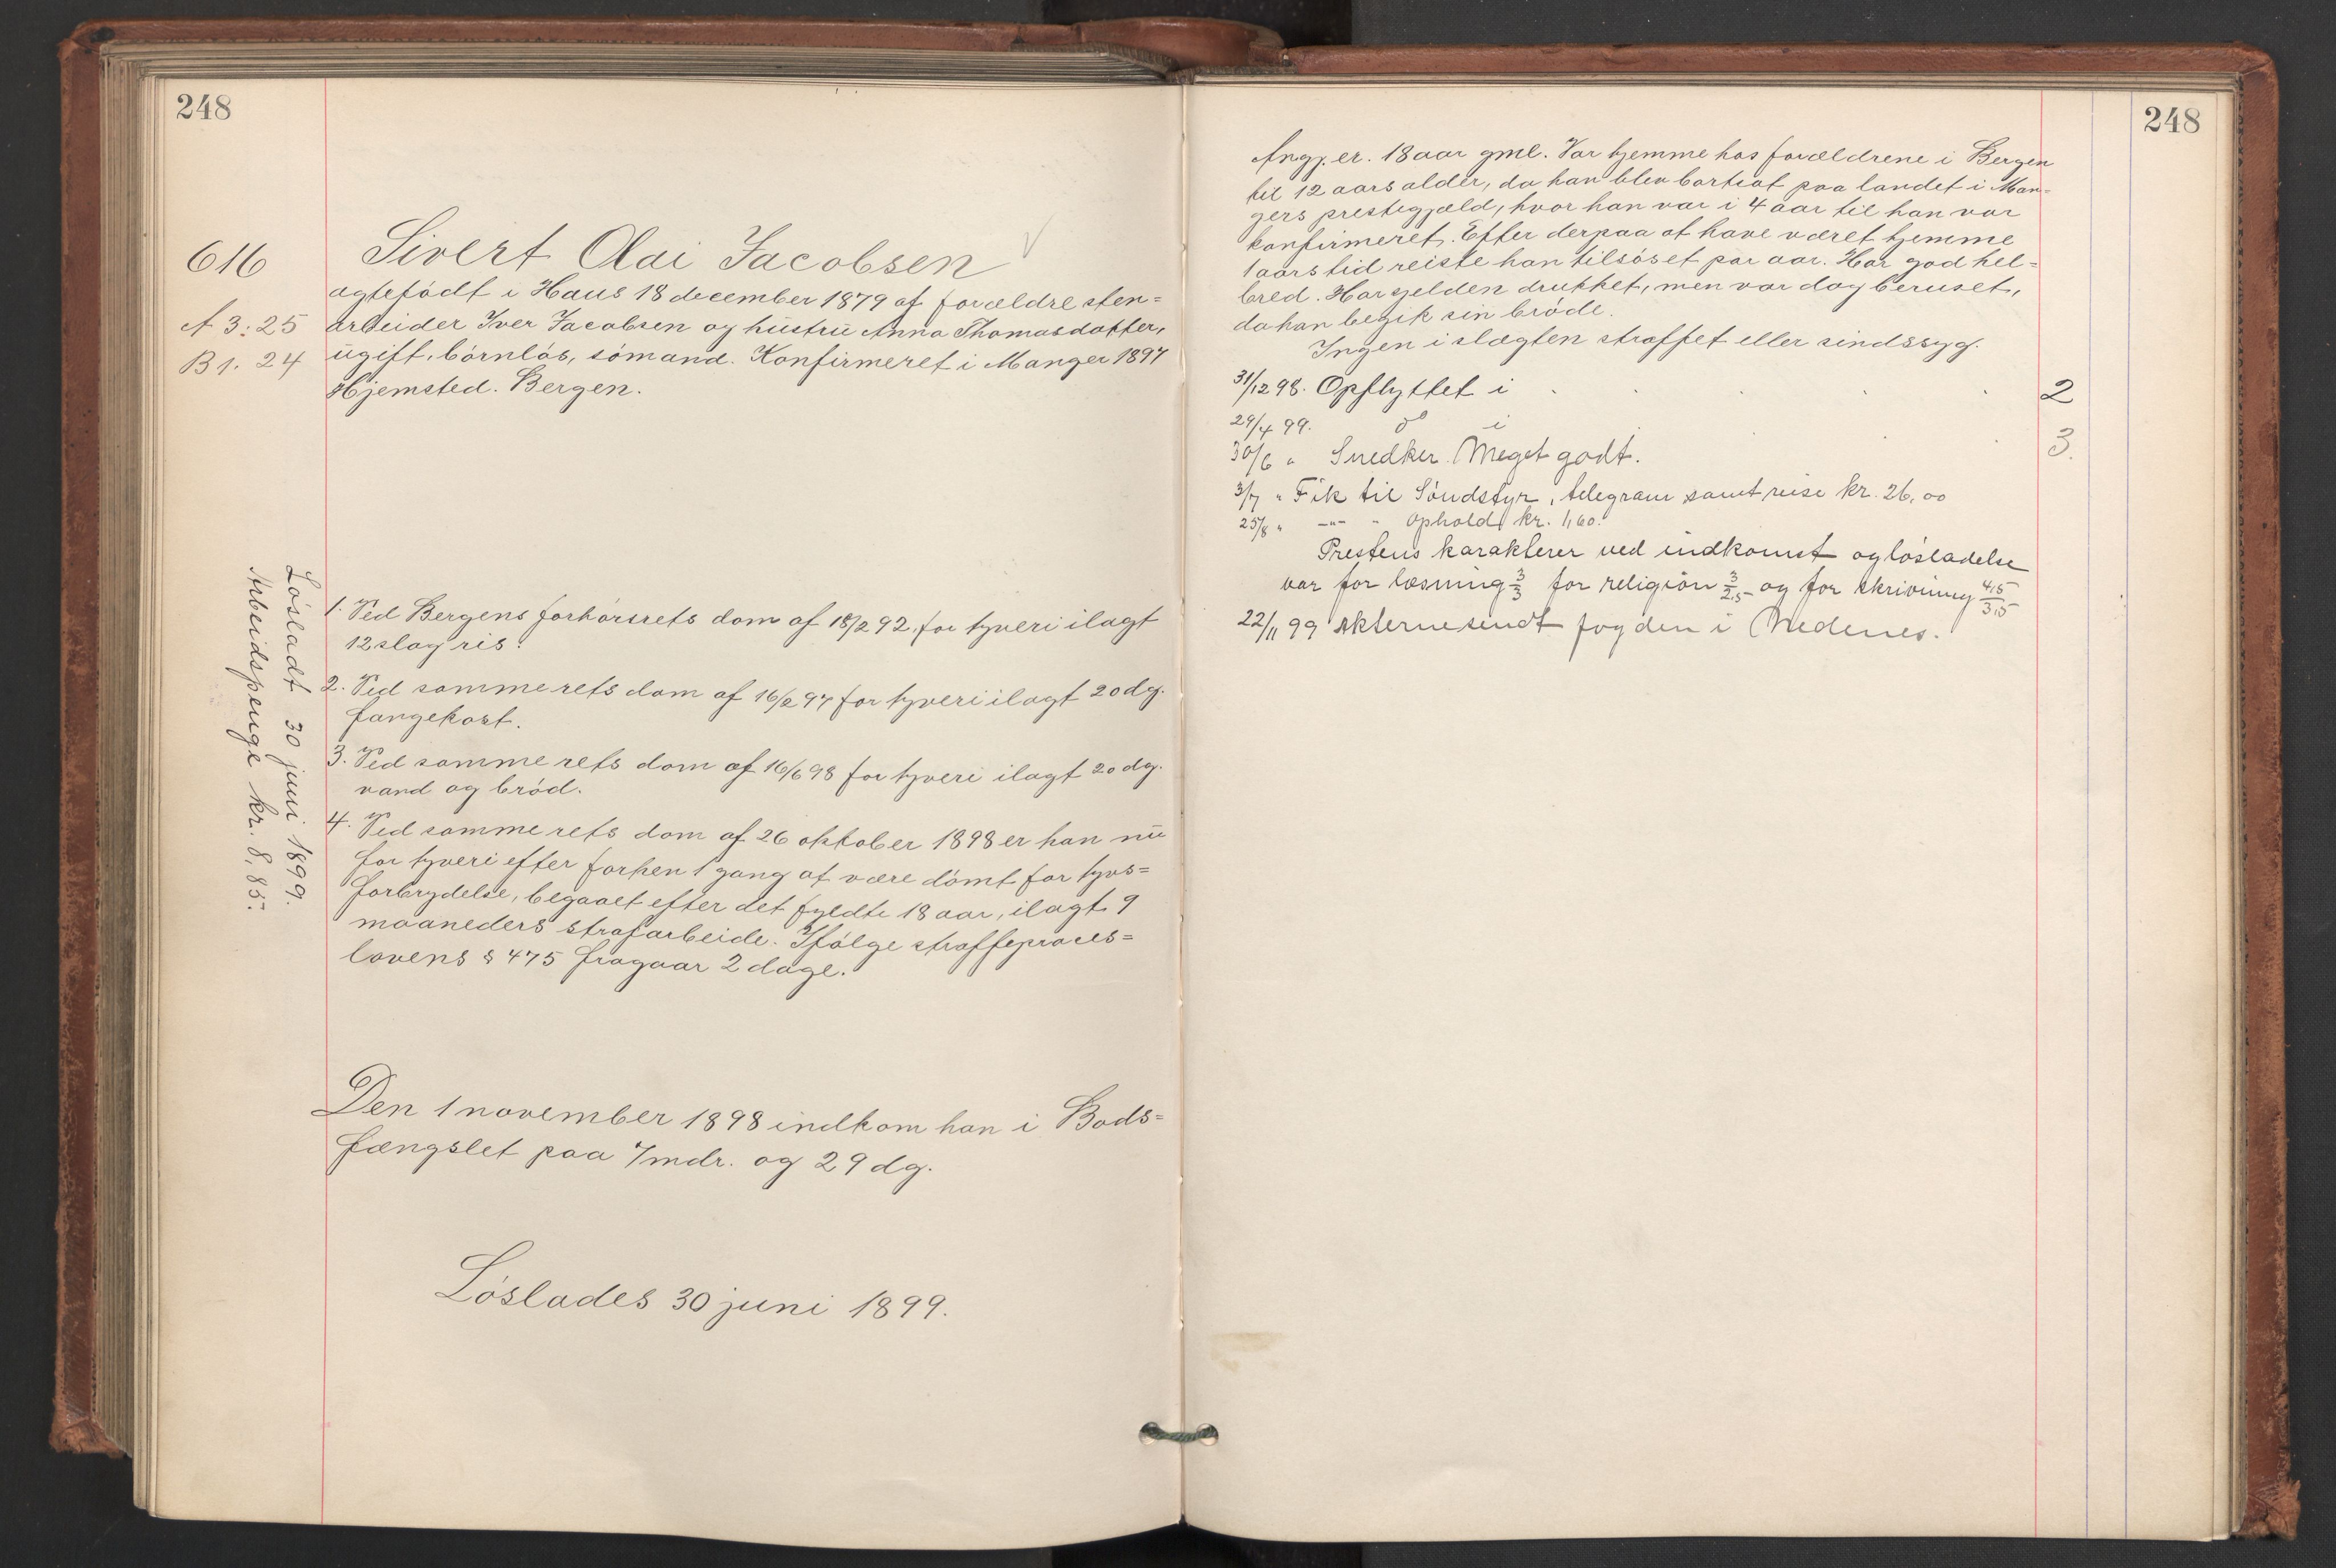 248
616
A 3: 25
B 1. 24
Sivert Olai Jacobsen
ægtefødt i Haus 18 december 1879 af forældre sten=
arbeider Iver Jacobsen og hustru Anna Thomasdatter,
ugift, børnløs, sømand. Konfirmeret i Manger 1897
Hjemsted. Bergen.
Løsladt 30 juni 1899.
Arbeidspenge kr. 8,85.
1. Ved Bergens forhørsrets dom af 18/2 92 for tyveri ilagt
12 slag ris.
2. Ved samme rets dom af 16/2 97 for tyveri ilagt 20 dg.
fangekost.
3. Ved samme rets dom af 16/6 98 for tyveri ilagt 20 dg.
vand og brød.
4. Ved samme rets dom af 26 oktober 1898 er han nu
for tyveri efter forhen 1 gang at være dømt for tyvs=
forbrydelse, begaaet efter det fyldte 18 aar, ilagt 9
maaneders strafarbeide. Ifølge straffeproces=
lovens § 475 fragaar 2 dage.
Den 1 november 1898 indkom han i Bods=
fængslet paa 7 mdr. og 29 dg.
Løslades 30 juni 1899.
248
Angj. er. 18 aar gml. Var hjemme hos forældrene i Bergen
til 12 aars alder, da han blev bortsat paa landet i Man=
gers prestegjæld, hvor han var i 4 aar til han var
konfirmeret. Efter derpaa at have været hjemme
1 aars tid reiste han tilsøs et par aar. Har god hel=
bred. Har sjelden drukket, men var dog beruset,
da han begik sin brøde.
Ingen i slægten straffet eller sindssyg.
31/12 98. Opflyttet i . . . . 2
29/4 99. do i . . 3.
30/6 " Snedker. Meget godt.
3/7 " Fik til Søndstyr, telegram samt reise kr. 26,00
25/8 " —"— " Ophold kr. 1,60.
Prestens karakterer ved indkomst og løsladelse
var for læsning 3/3 for religion 3/2,5 og for skrivning 4,5/3,5
22/11 99 Akterne sendt fogden i Nedenes.